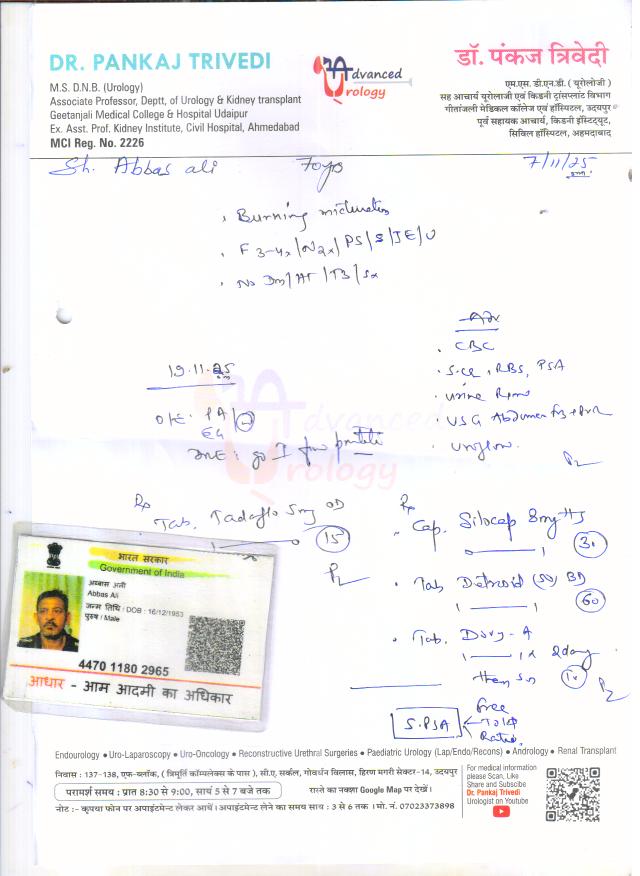 DR. PANKAJ TRIVEDI
M.S. D.N.B. (Urology)
Associate Professor, Deptt. of Urology & Kidney transplant
Geetanjali Medical College & Hospital Udaipur
Ex. Asst. Prof. Kidney Institute, Civil Hospital, Ahmedabad
MCI Reg. No. 2226
Advanced
Urology
डॉ. पंकज त्रिवेदी
एम.एस. डी.एन.डी. ( यूरोलोजी )
सह आचार्य यूरोलाजी एवं किडनी ट्रांसप्लांट विभाग
गीतांजली मेडिकल कॉलेज एवं हॉस्पिटल, उदयपुर
पूर्व सहायक आचार्य, किडनी इंस्टिट्यूट,
सिविल हॉस्पिटल, अहमदाबाद
Sh. Abbas ali 70yrs 7/11/25
Burning micturation
F 3-4x/N2x/PS/S/IE/U
No Dm/HT/TB/Sx
Adv
CBC
S.CR, RBS, PSA
urine
USG Abdomen PVR
uroflow
19.11.25
O/E. PA/
EG
DRE: Go I prostate
Rp
Tab. Tadaflo 5mg OD
15
Rp
Cap. Silocap 8mg HS
30
Tab BD
60
Tab. -A
1 1 x 2day
then
10
S.PSA
Free
Total
Ratio
भारत सरकार
Government of India
अब्बास अली
Abbas Ali
जन्म तिथि / DOB : 16/12/1953
पुरुष / Male
4470 1180 2965
आधार - आम आदमी का अधिकार
Endourology ● Uro-Laparoscopy ● Uro-Oncology ● Reconstructive Urethral Surgeries ● Paediatric Urology (Lap/Endo/Recons) ● Andrology ● Renal Transplant
निवास : 137-138, एफ-ब्लॉक, ( त्रिमूर्ति कॉम्पलेक्स के पास ), सी.ए. सर्कल, गोवर्धन विलास, हिरण मगरी सेक्टर-14, उदयपुर
परामर्श समय : प्रात 8:30 से 9:00, सायं 5 से 7 बजे तक
रास्ते का नक्शा Google Map पर देखें।
नोट :- कृपया फोन पर अपाइंटमेन्ट लेकर आयें। अपाइंटमेन्ट लेने का समय साय : 3 से 6 तक । मो. नं. 07023373898
For medical information
please Scan, Like
Share and Subscibe
Dr. Pankaj Trivedi
Urologist on Youtube